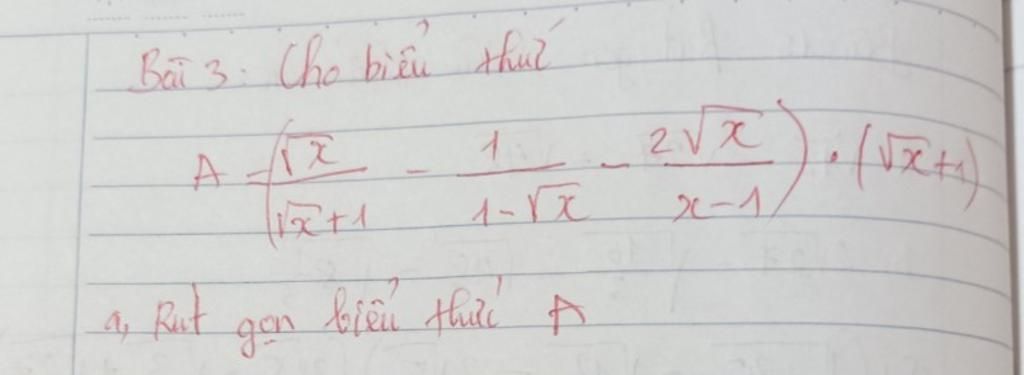 Bài 3: Cho biểu thức
A = (√x/(√x+1) - 1/(1-√x) - 2√x/(x-1)) . (√x+1)
a, Rút gọn biểu thức A